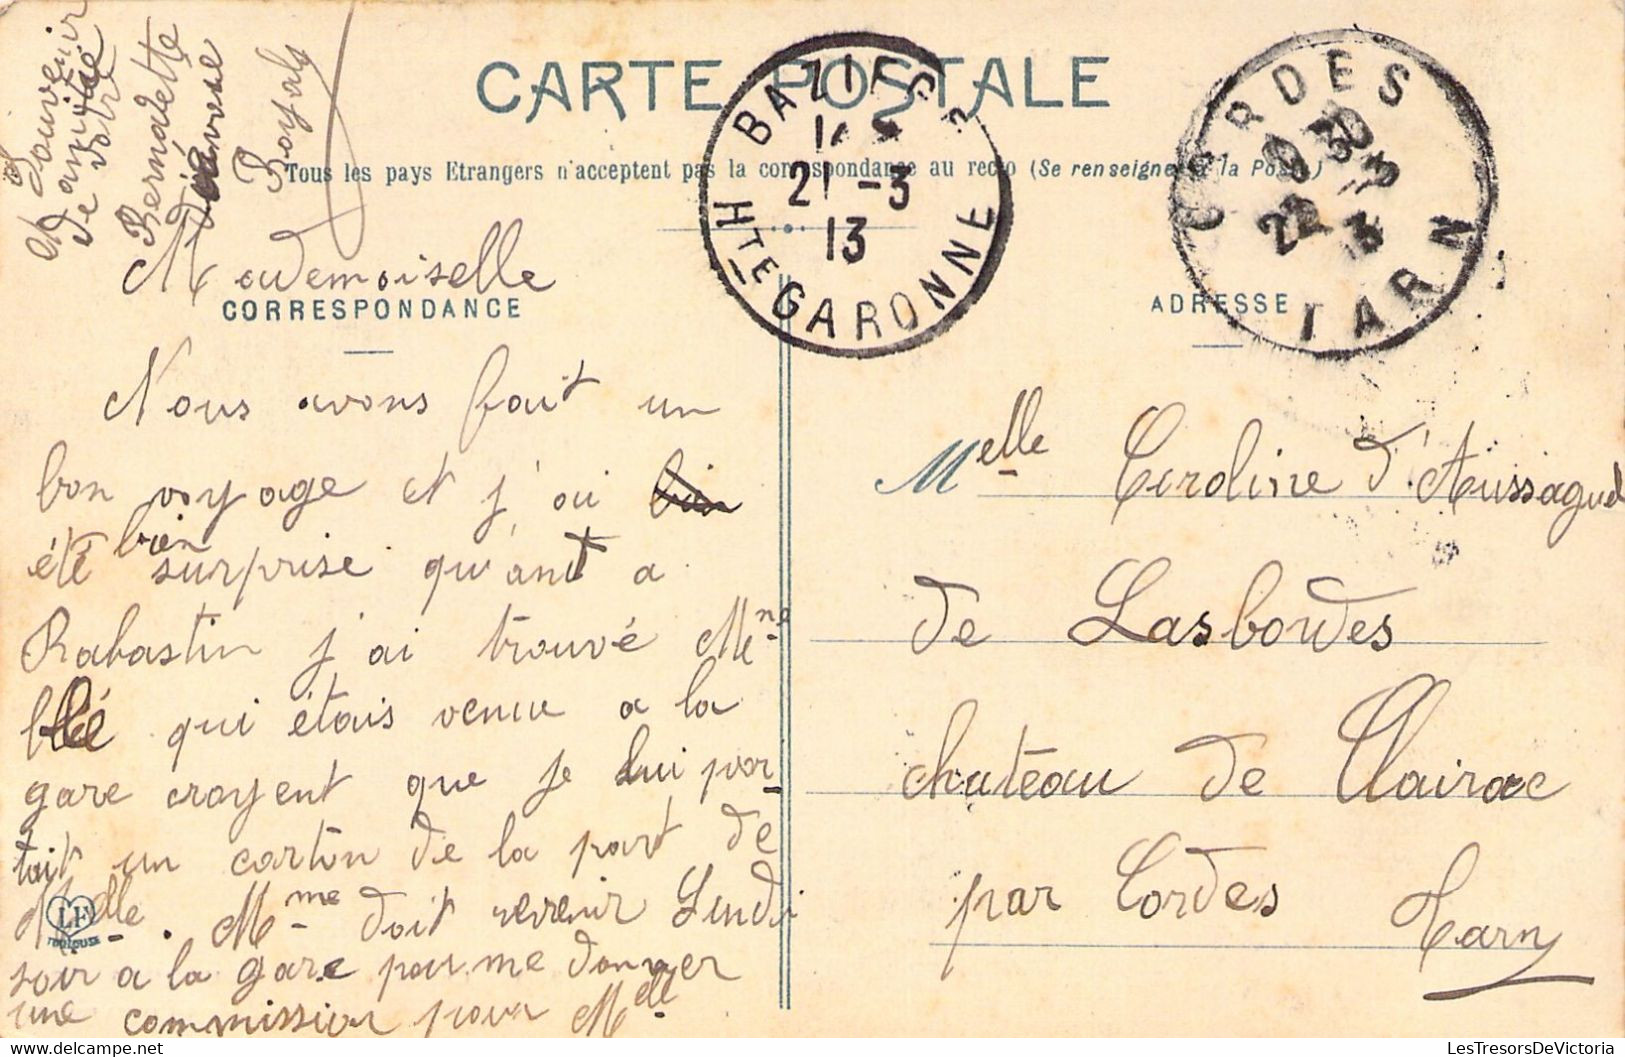 CARTE POSTALE
Tous les pays Etrangers n'acceptent pas la correspondance au recto (Se renseigner à la Poste)
BAZIEGE
21 -3
13
HTE GARONNE
CORDES
22 -3
TARN
Souvenir
d'amitié
de votre
Bernadette
Royaly
CORRESPONDANCE
Mademoiselle
Nous avons fait un
bon voyage et j'ai bien
été bien surprise qu'ant a
Rabastin j'ai trouvé Mme
qui étais venue a la
gare croyent que je lui por
tait un carton de la part de
Melle. Mme doit revenir Lundi
soir a la gare pour me donner
une commission pour Melle
LF
TOULOUSE
ADRESSE
Melle Caroline d'Aussaguel
de Lasbordes
chateau de Clairac
par Cordes
Tarn
LesTresorsDeVictoria